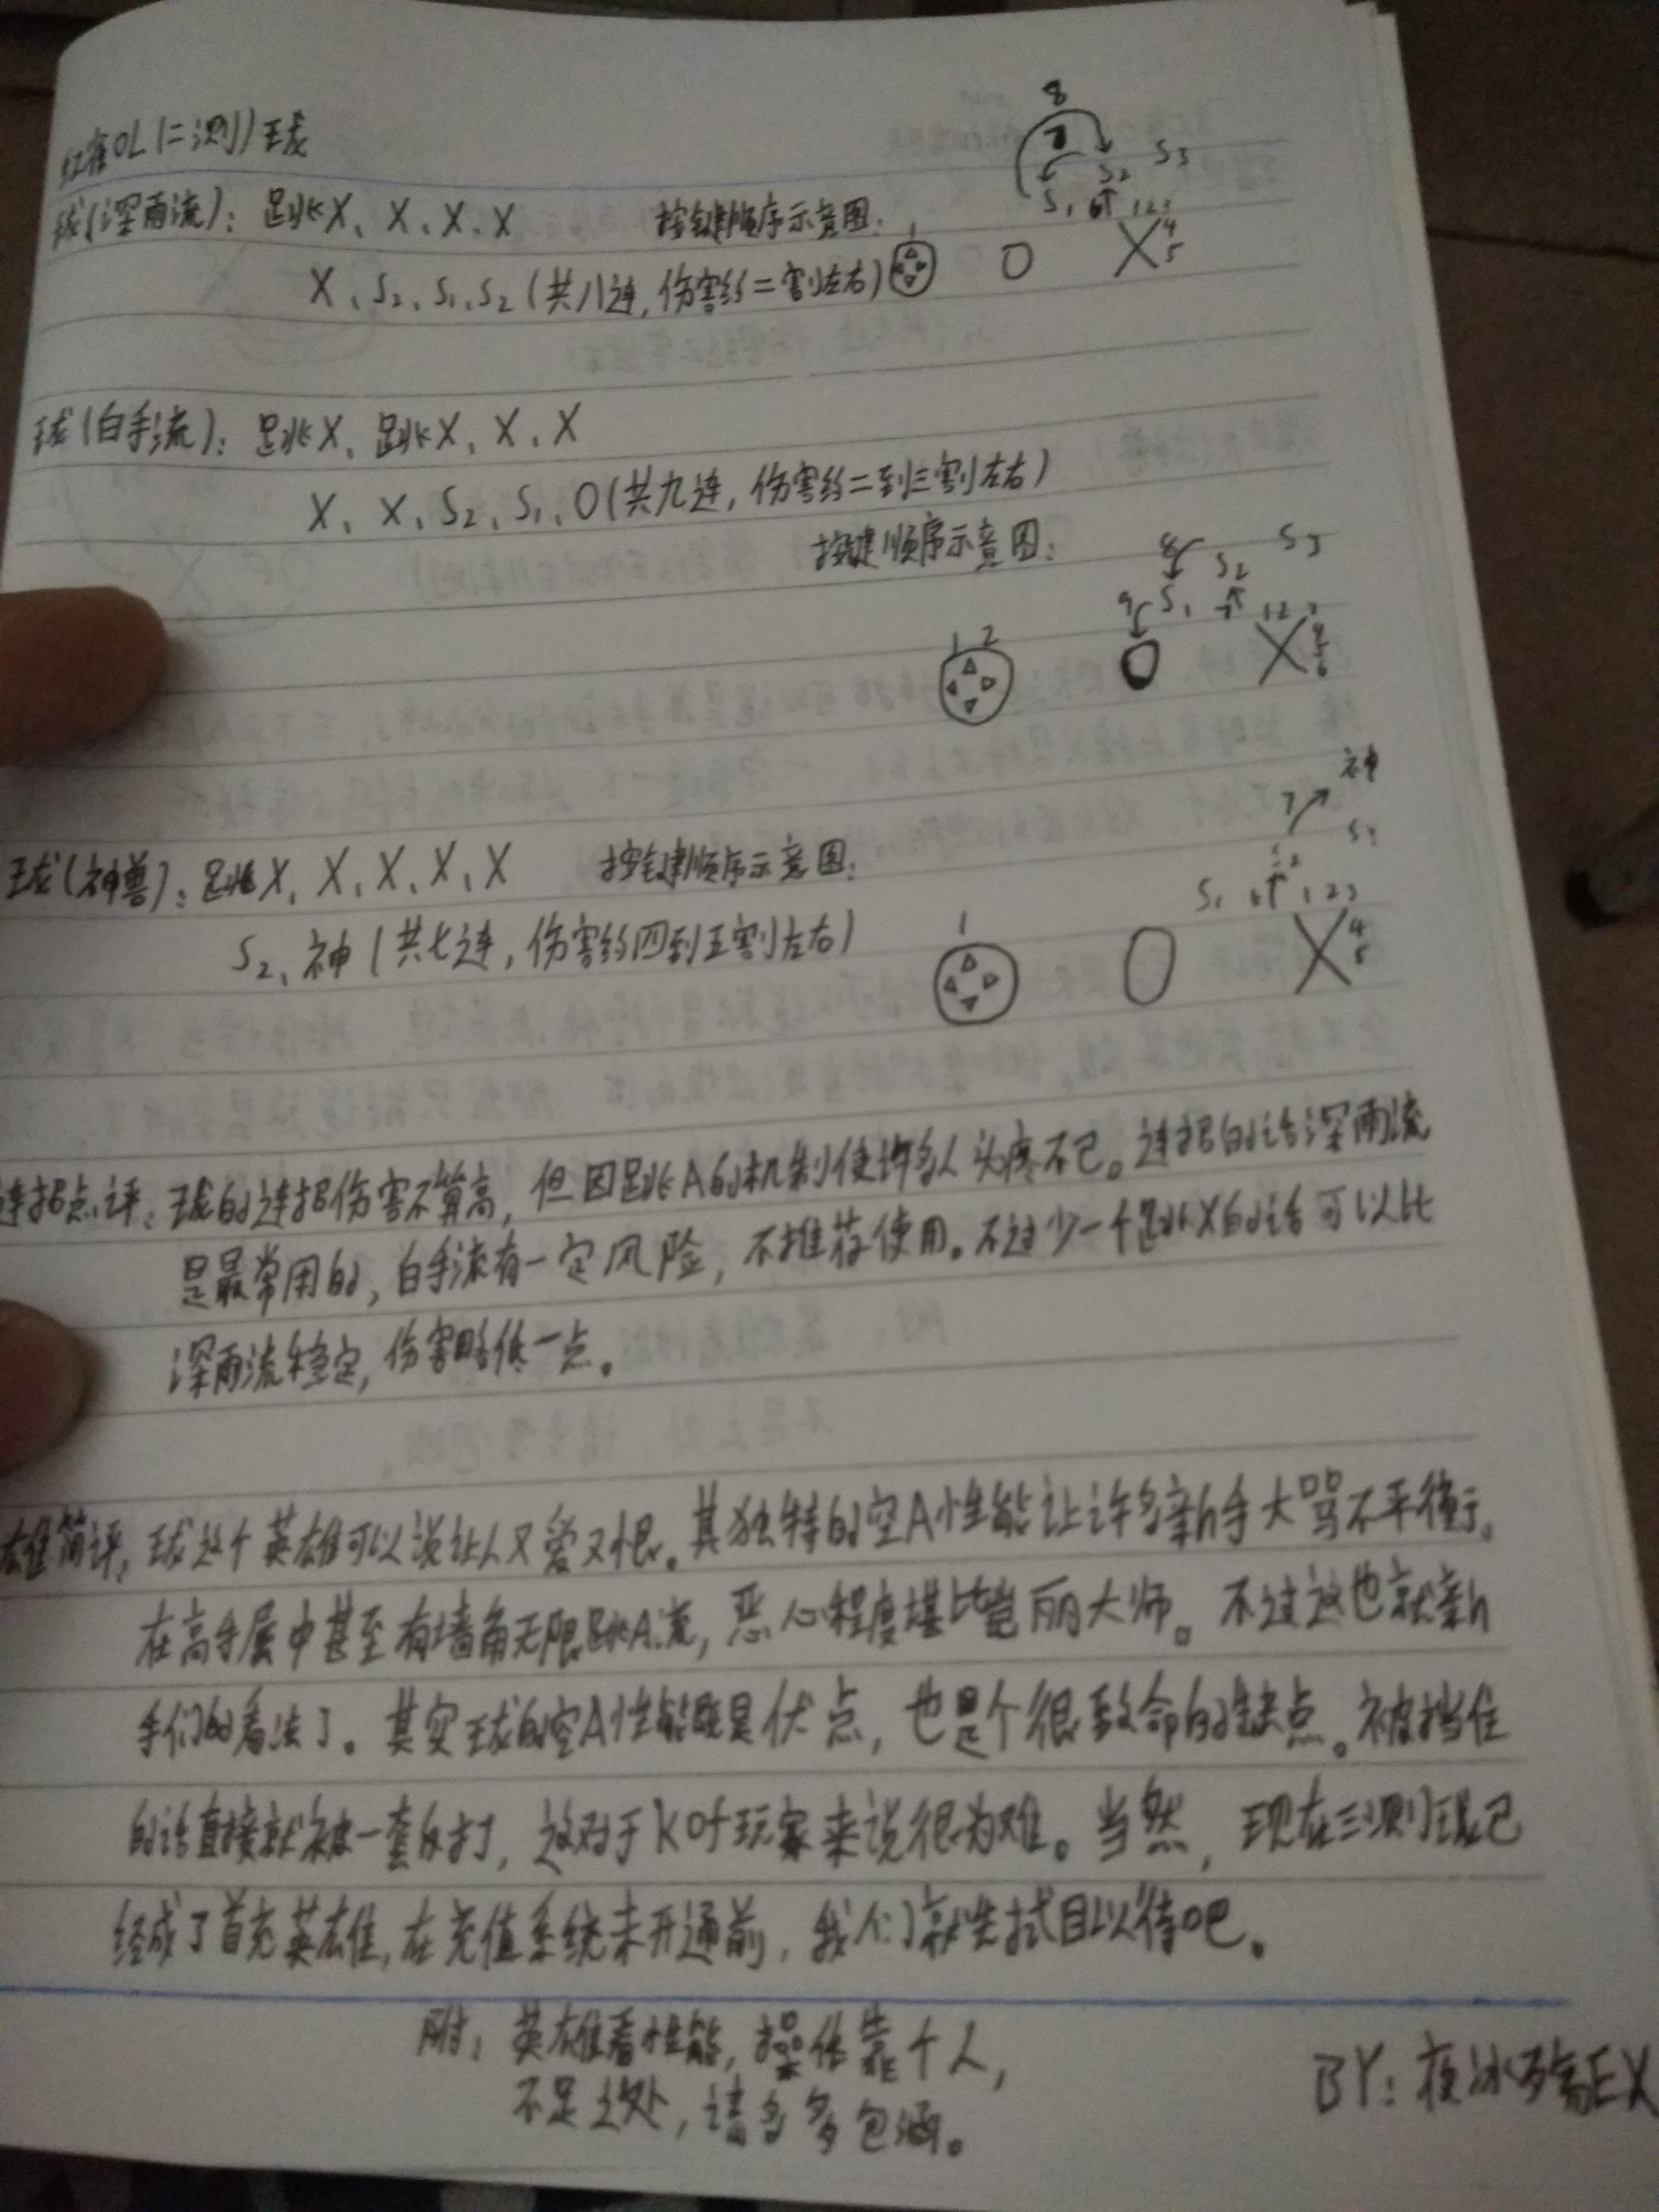 OL(二测)球
球(深雨流):跳X、X、X、X 按键顺序示意图:
X、S2、S1、S2(共八连,伤害约二割左右)
8
S1 S2 S3
6↑ 123
1 O X 4
5
球(白手流):跳X、跳X、X、X
X、X、S2、S1、O(共九连,伤害约二到三割左右)
按键顺序示意图:
8 S2 S3
9 S1 7↑ 123
1 2 O X 4
5
6
神
7
球(神兽):跳X、X、X、X、X 按键顺序示意图:
S2、神(共七连,伤害约四到五割左右)
S1 6↑ 123
1 O X 4
5
连招点评:球的连招伤害不算高,但因跳A的机制使许多人头疼不已。连招的话深雨流
是最常用的,白手流有一定风险,不推荐使用。不过少一个跳X的话可以比
深雨流稳定,伤害略低一点。
雄简评:球这个英雄可以说让人又爱又恨。其独特的空A性能让许多新手大骂不平衡。
在高手层中甚至有墙角无限跳A流,恶心程度堪比 丽大师。不过这也就新
手们的看法了。其实球的空A性能既是优点,也是个很致命的缺点。被挡住
的话直接就被一套反打,这对于kof玩家来说很为难。当然,现在三测球已
经成了首充英雄,在充值系统未开通前,我们就先拭目以待吧。
附:英雄看性能,操作靠个人,
不足之处,请多多包涵。
BY:夜冰 EX